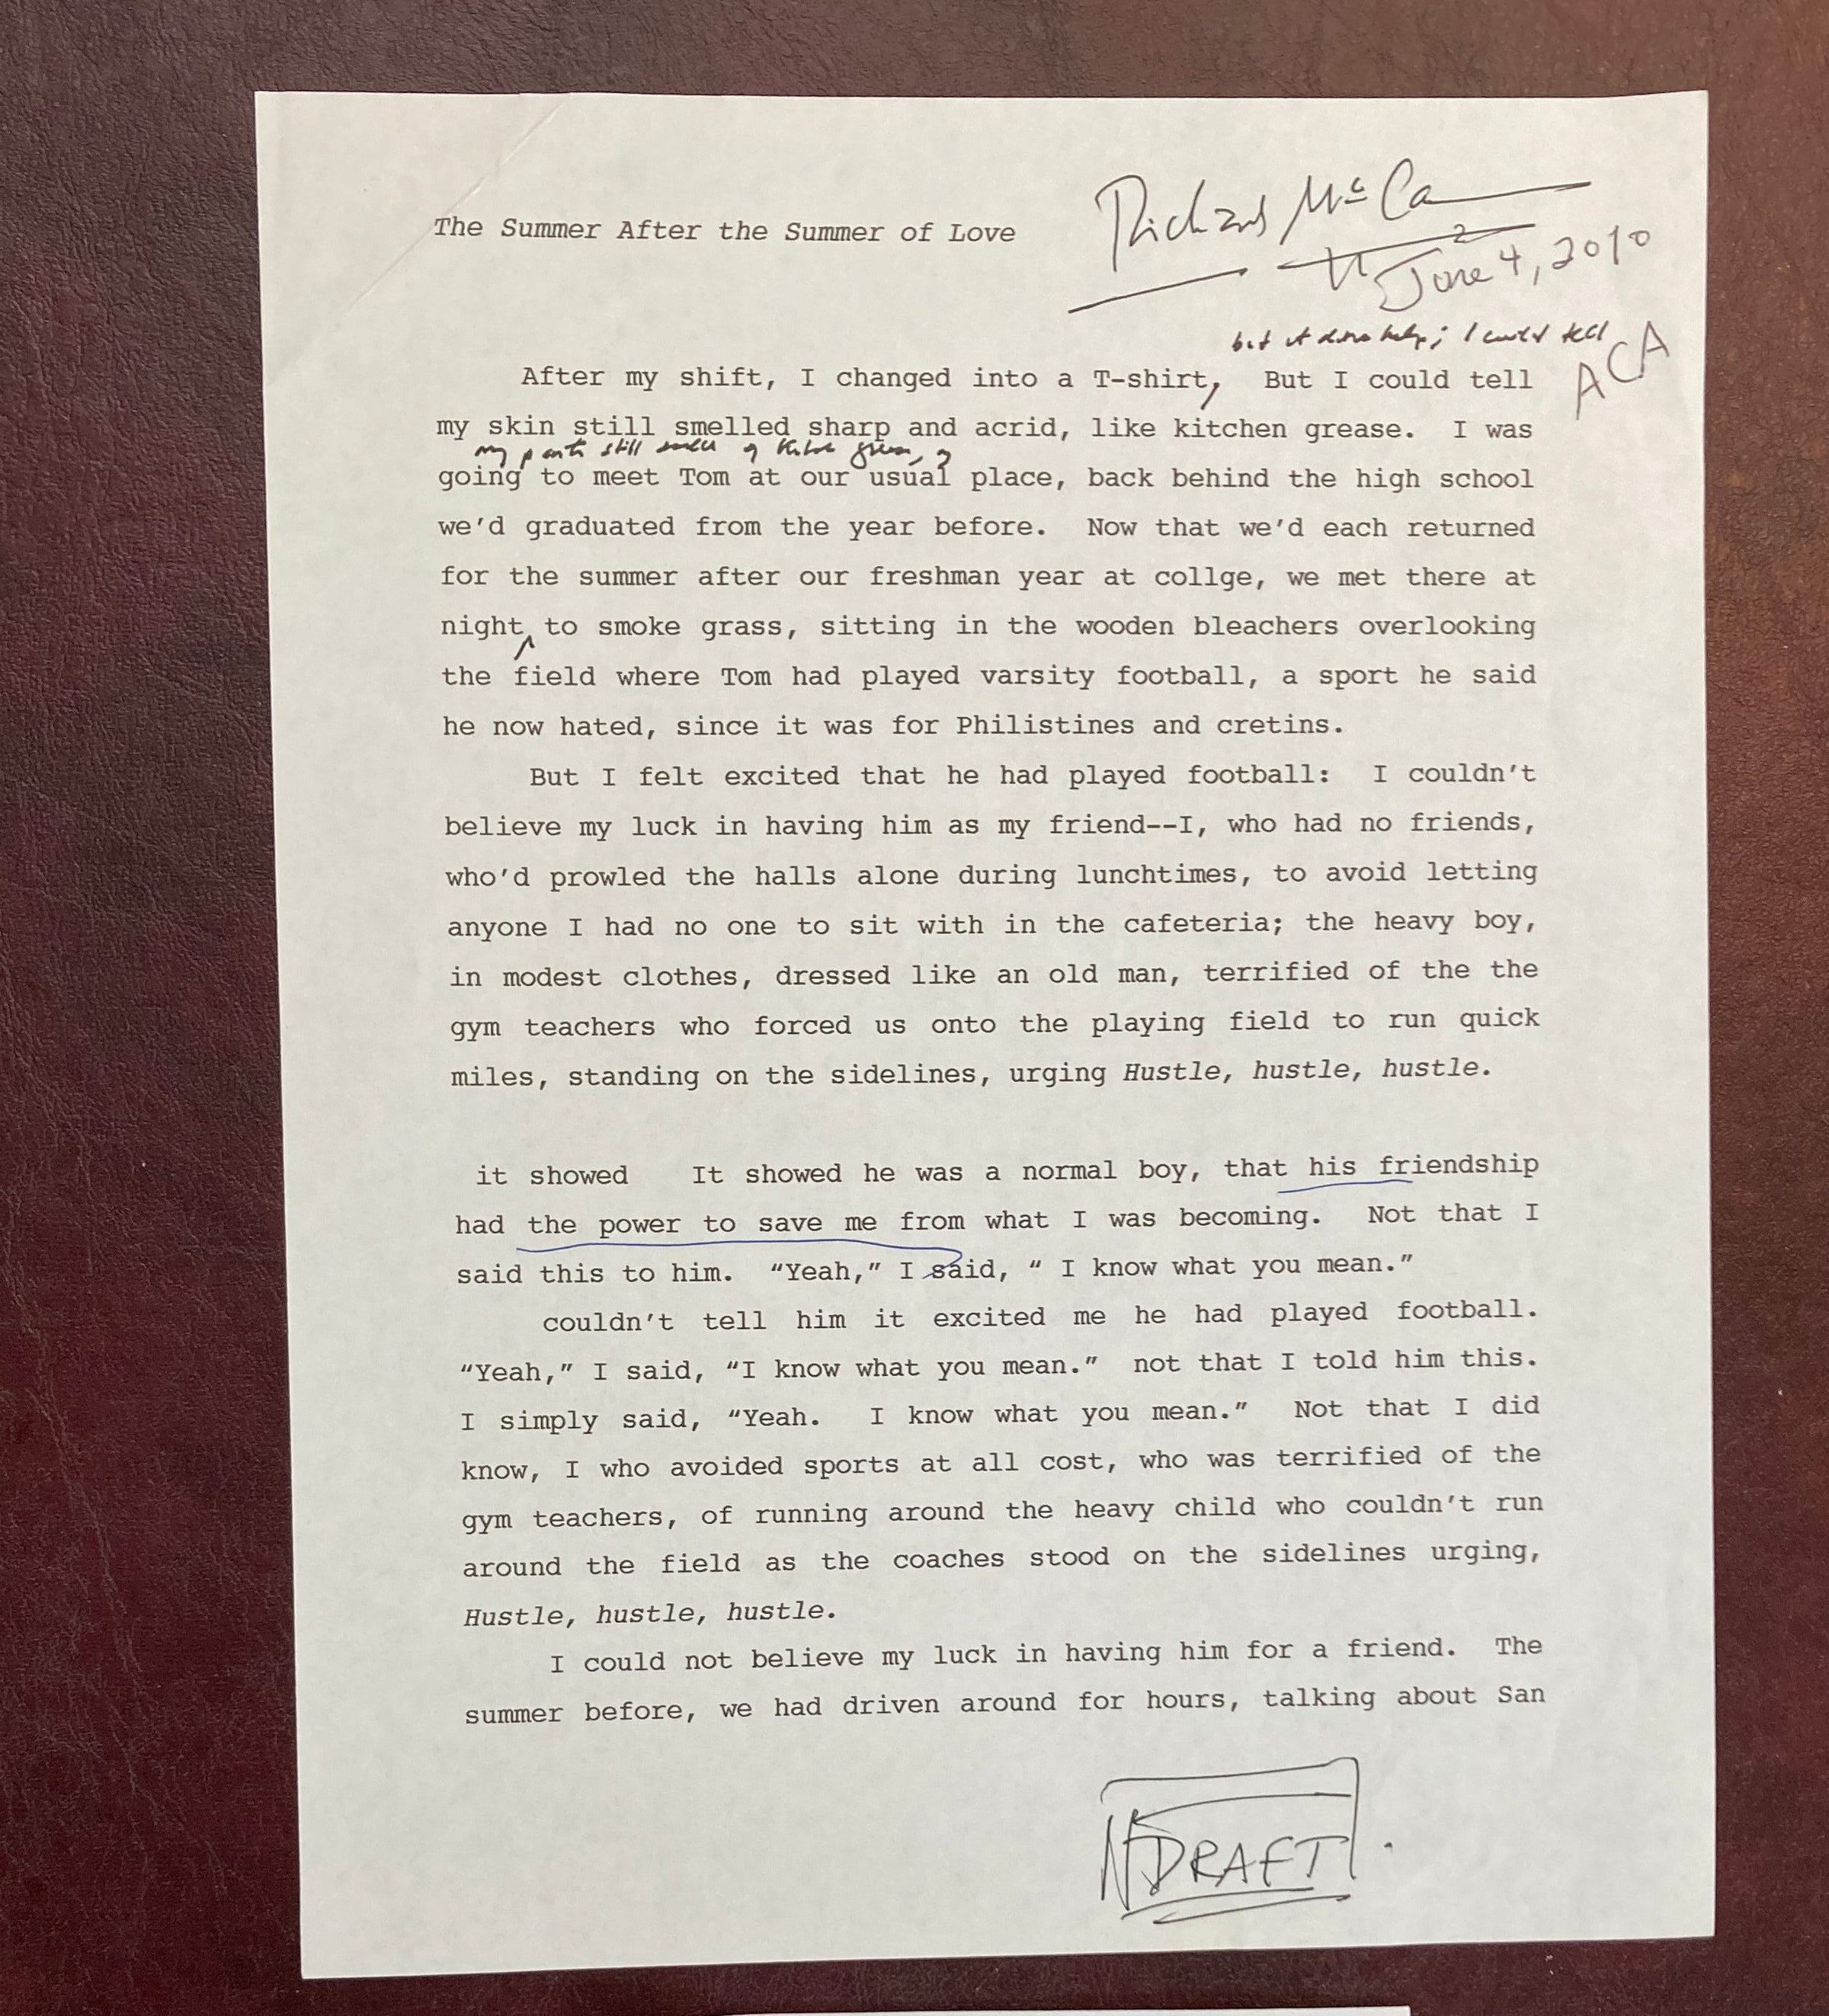 The Summer After the Summer of Love
Richard McCa
June 4, 2010
ACA
but it help; I could tell
After my shift, I changed into a T-shirt, But I could tell
my skin still smelled sharp and acrid, like kitchen grease. I was
my pants still of
going to meet Tom at our usual place, back behind the high school
we'd graduated from the year before. Now that we'd each returned
for the summer after our freshman year at collge, we met there at
night, to smoke grass, sitting in the wooden bleachers overlooking
the field where Tom had played varsity football, a sport he said
he now hated, since it was for Philistines and cretins.
But I felt excited that he had played football: I couldn't
believe my luck in having him as my friend--I, who had no friends,
who'd prowled the halls alone during lunchtimes, to avoid letting
anyone I had no one to sit with in the cafeteria; the heavy boy,
in modest clothes, dressed like an old man, terrified of the the
gym teachers who forced us onto the playing field to run quick
miles, standing on the sidelines, urging Hustle, hustle, hustle.
it showed It showed he was a normal boy, that his friendship
had the power to save me from what I was becoming. Not that I
said this to him. "Yeah," I said, " I know what you mean."
couldn't tell him it excited me he had played football.
"Yeah," I said, "I know what you mean." not that I told him this.
I simply said, "Yeah. I know what you mean." Not that I did
know, I who avoided sports at all cost, who was terrified of the
gym teachers, of running around the heavy child who couldn't run
around the field as the coaches stood on the sidelines urging,
Hustle, hustle, hustle.
I could not believe my luck in having him for a friend. The
summer before, we had driven around for hours, talking about San
DRAFT